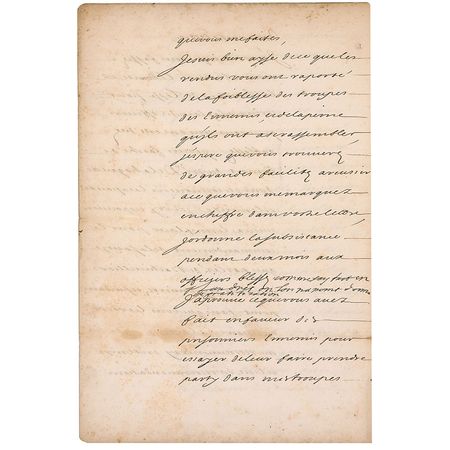 que vous me faites,
Je suis bien ayse de ce que les
rendus vous ont raporté
de la foiblesse des troupes
des Ennemis, et de la peine
qu'ils ont a se rassembler,
j'espere que vous trouverez
de grandes facilitez a reussir
a ce que vous me marquez
en chiffre dans vostre lettre,
J'ordonne la subsistance
pendant deux mois aux
officiers blessez comme
J'aprouve ce que vous avez
fait en faveur des
prisonniers Ennemis pour
essayer de leur faire prendre
party dans mes troupes